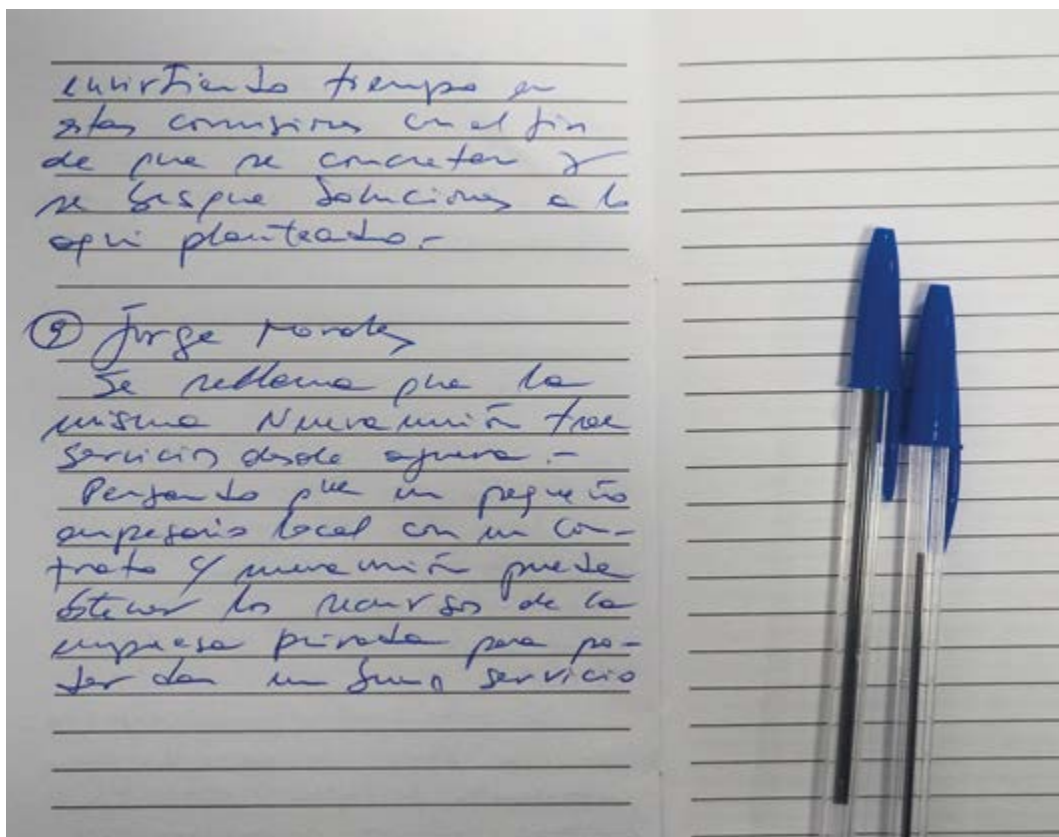 invirtiendo tiempo en
estas comisiones con el fin
de que se concreten y
se busque soluciones a lo
aqui planteado.-
⑨ Jorge Morales
Se reclama que la
misma Nueva unión trae
servicios desde afuera.-
Pensando que un pequeño
empresario local con un con-
trato c/ nueva unión pueda
obtener los recursos de la
empresa privada para po-
der dar un buen servicio